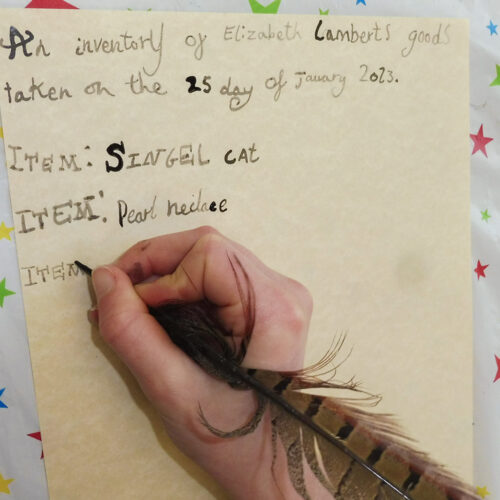 An inventory of Elizabeth Lamberts goods
taken on the 25 day of Januray 2023.
ITEM: SINGEL CAt
ITEM: Pearl necklace
ITEM